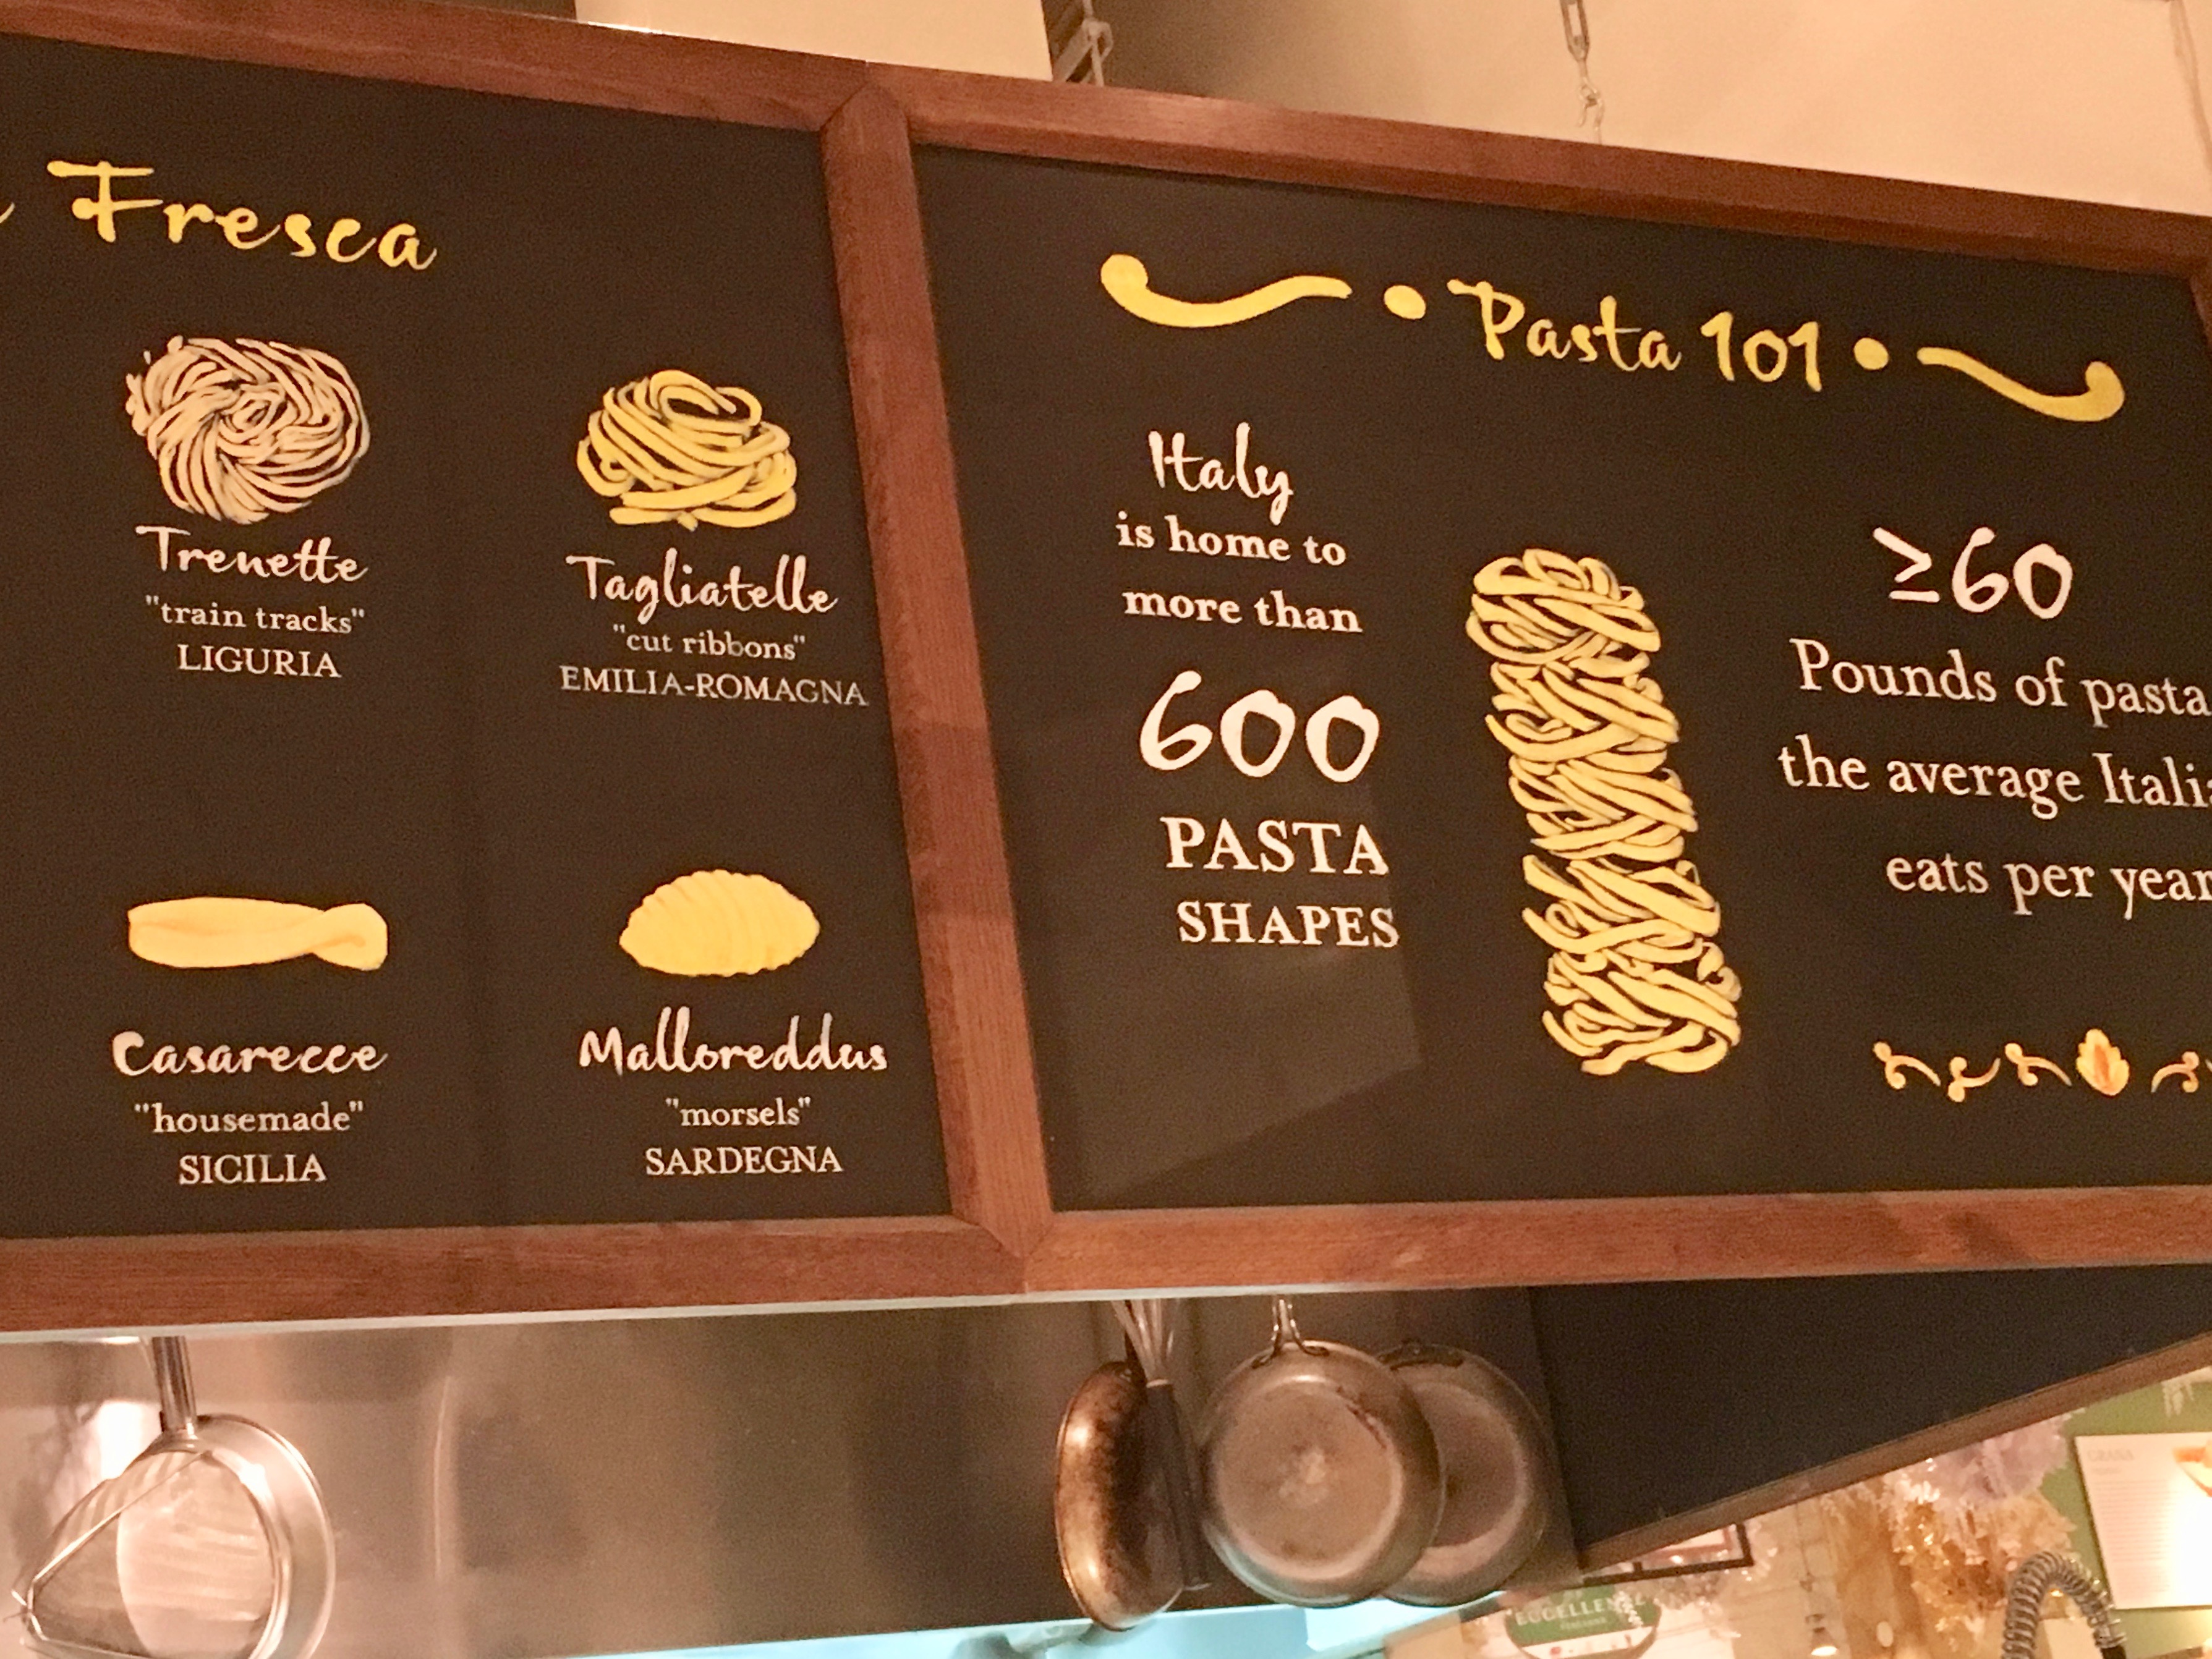 Fresca
Trenette
"train tracks"
LIGURIA
Tagliatelle
"cut ribbons"
EMILIA-ROMAGNA
Casarecce
"housemade"
SICILIA
Malloreddus
"morsels"
SARDEGNA
Pasta 101
Italy
is home to
more than
600
PASTA
SHAPES
≥60
Pounds of pasta
the average
eats per year
GRANA